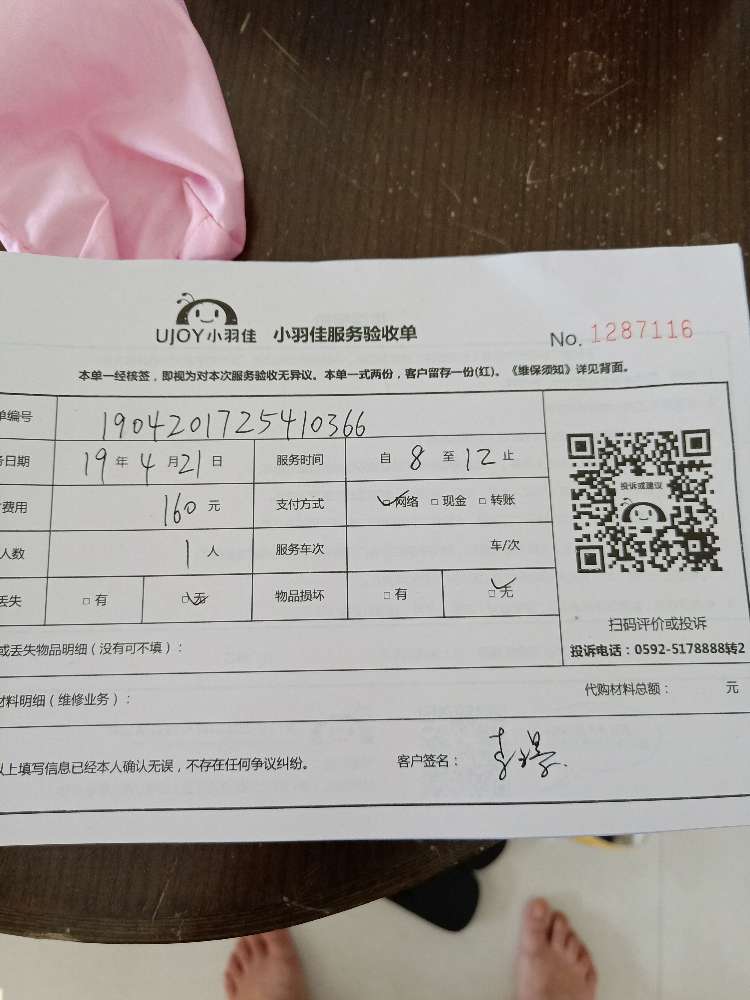 UJOY小羽佳 小羽佳服务验收单 No. 1287116
本单一经核签，即视为对本次服务验收无异议。本单一式两份，客户留存一份(红)。《维保须知》详见背面。
单编号 1904201725410366
务日期 19年4月21日 服务时间 自8至12止
费用 160元 支付方式 □网络 □现金 □转账
人数 1人 服务车次 车/次
丢失 □有 □无 物品损坏 □有 □无
投诉或建议
扫码评价或投诉
投诉电话：0592-5178888转2
或丢失物品明细（没有可不填）：
材料明细（维修业务）： 代购材料总额： 元
以上填写信息已经本人确认无误，不存在任何争议纠纷。 客户签名：